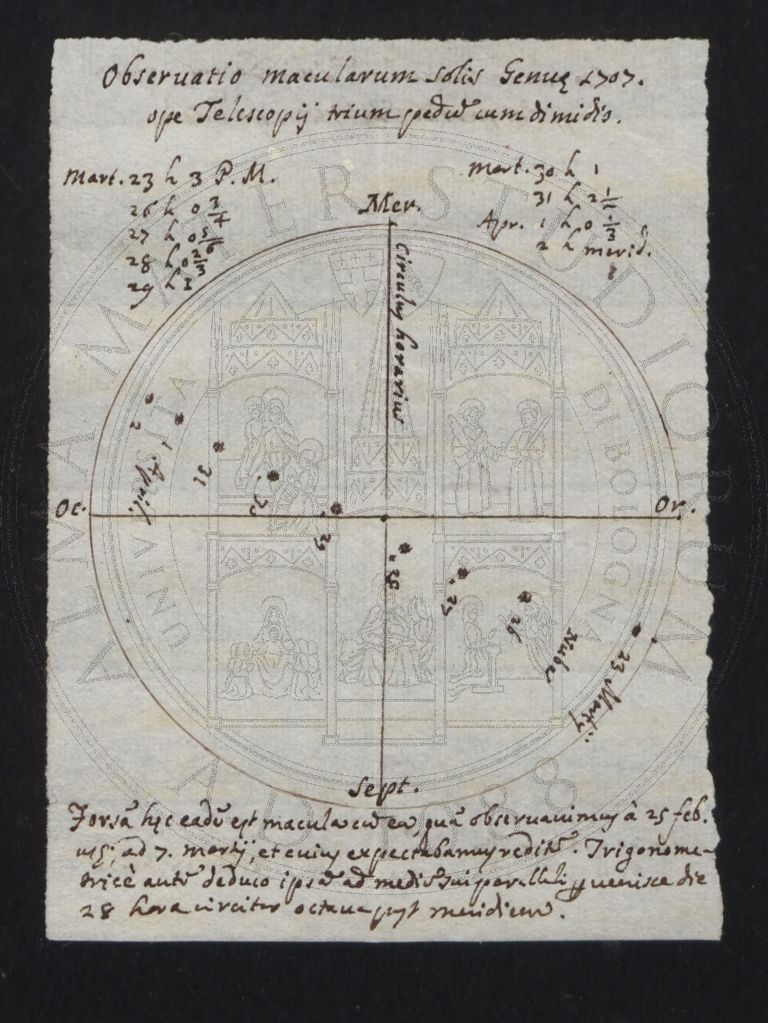 Observatio macularum solis Genuę 1707.
ope Telescopij trium pedũ cum dimidio.
Mart. 23 h 3 P. M.
26 h 0 3/4
27 h 0 5/6
28 h 0 2/3
29 h 1
Mart. 30 h 1
31 h 2 1/2
Apr. 1 h 0 1/3
2 h merid.
Mer.
Circulus horarius
2
1 April.
31
30
29
Oc.
Or.
28
27
26
Nubes
23 Martij
Sept.
Forsã hęc eadẽ est macula cũ ea, quã observauimus à 25 feb.
usq; ad 7. martij, et cuius expectabamus reditũ. Trigonome-
tricè autẽ deduco ipsã ad mediũ sui paralleli peruenisse die
28 hora circiter octaua post meridiem.
ALMA MATER STUDIORUM
UNIVERSITÀ DI BOLOGNA
A.D. 1088